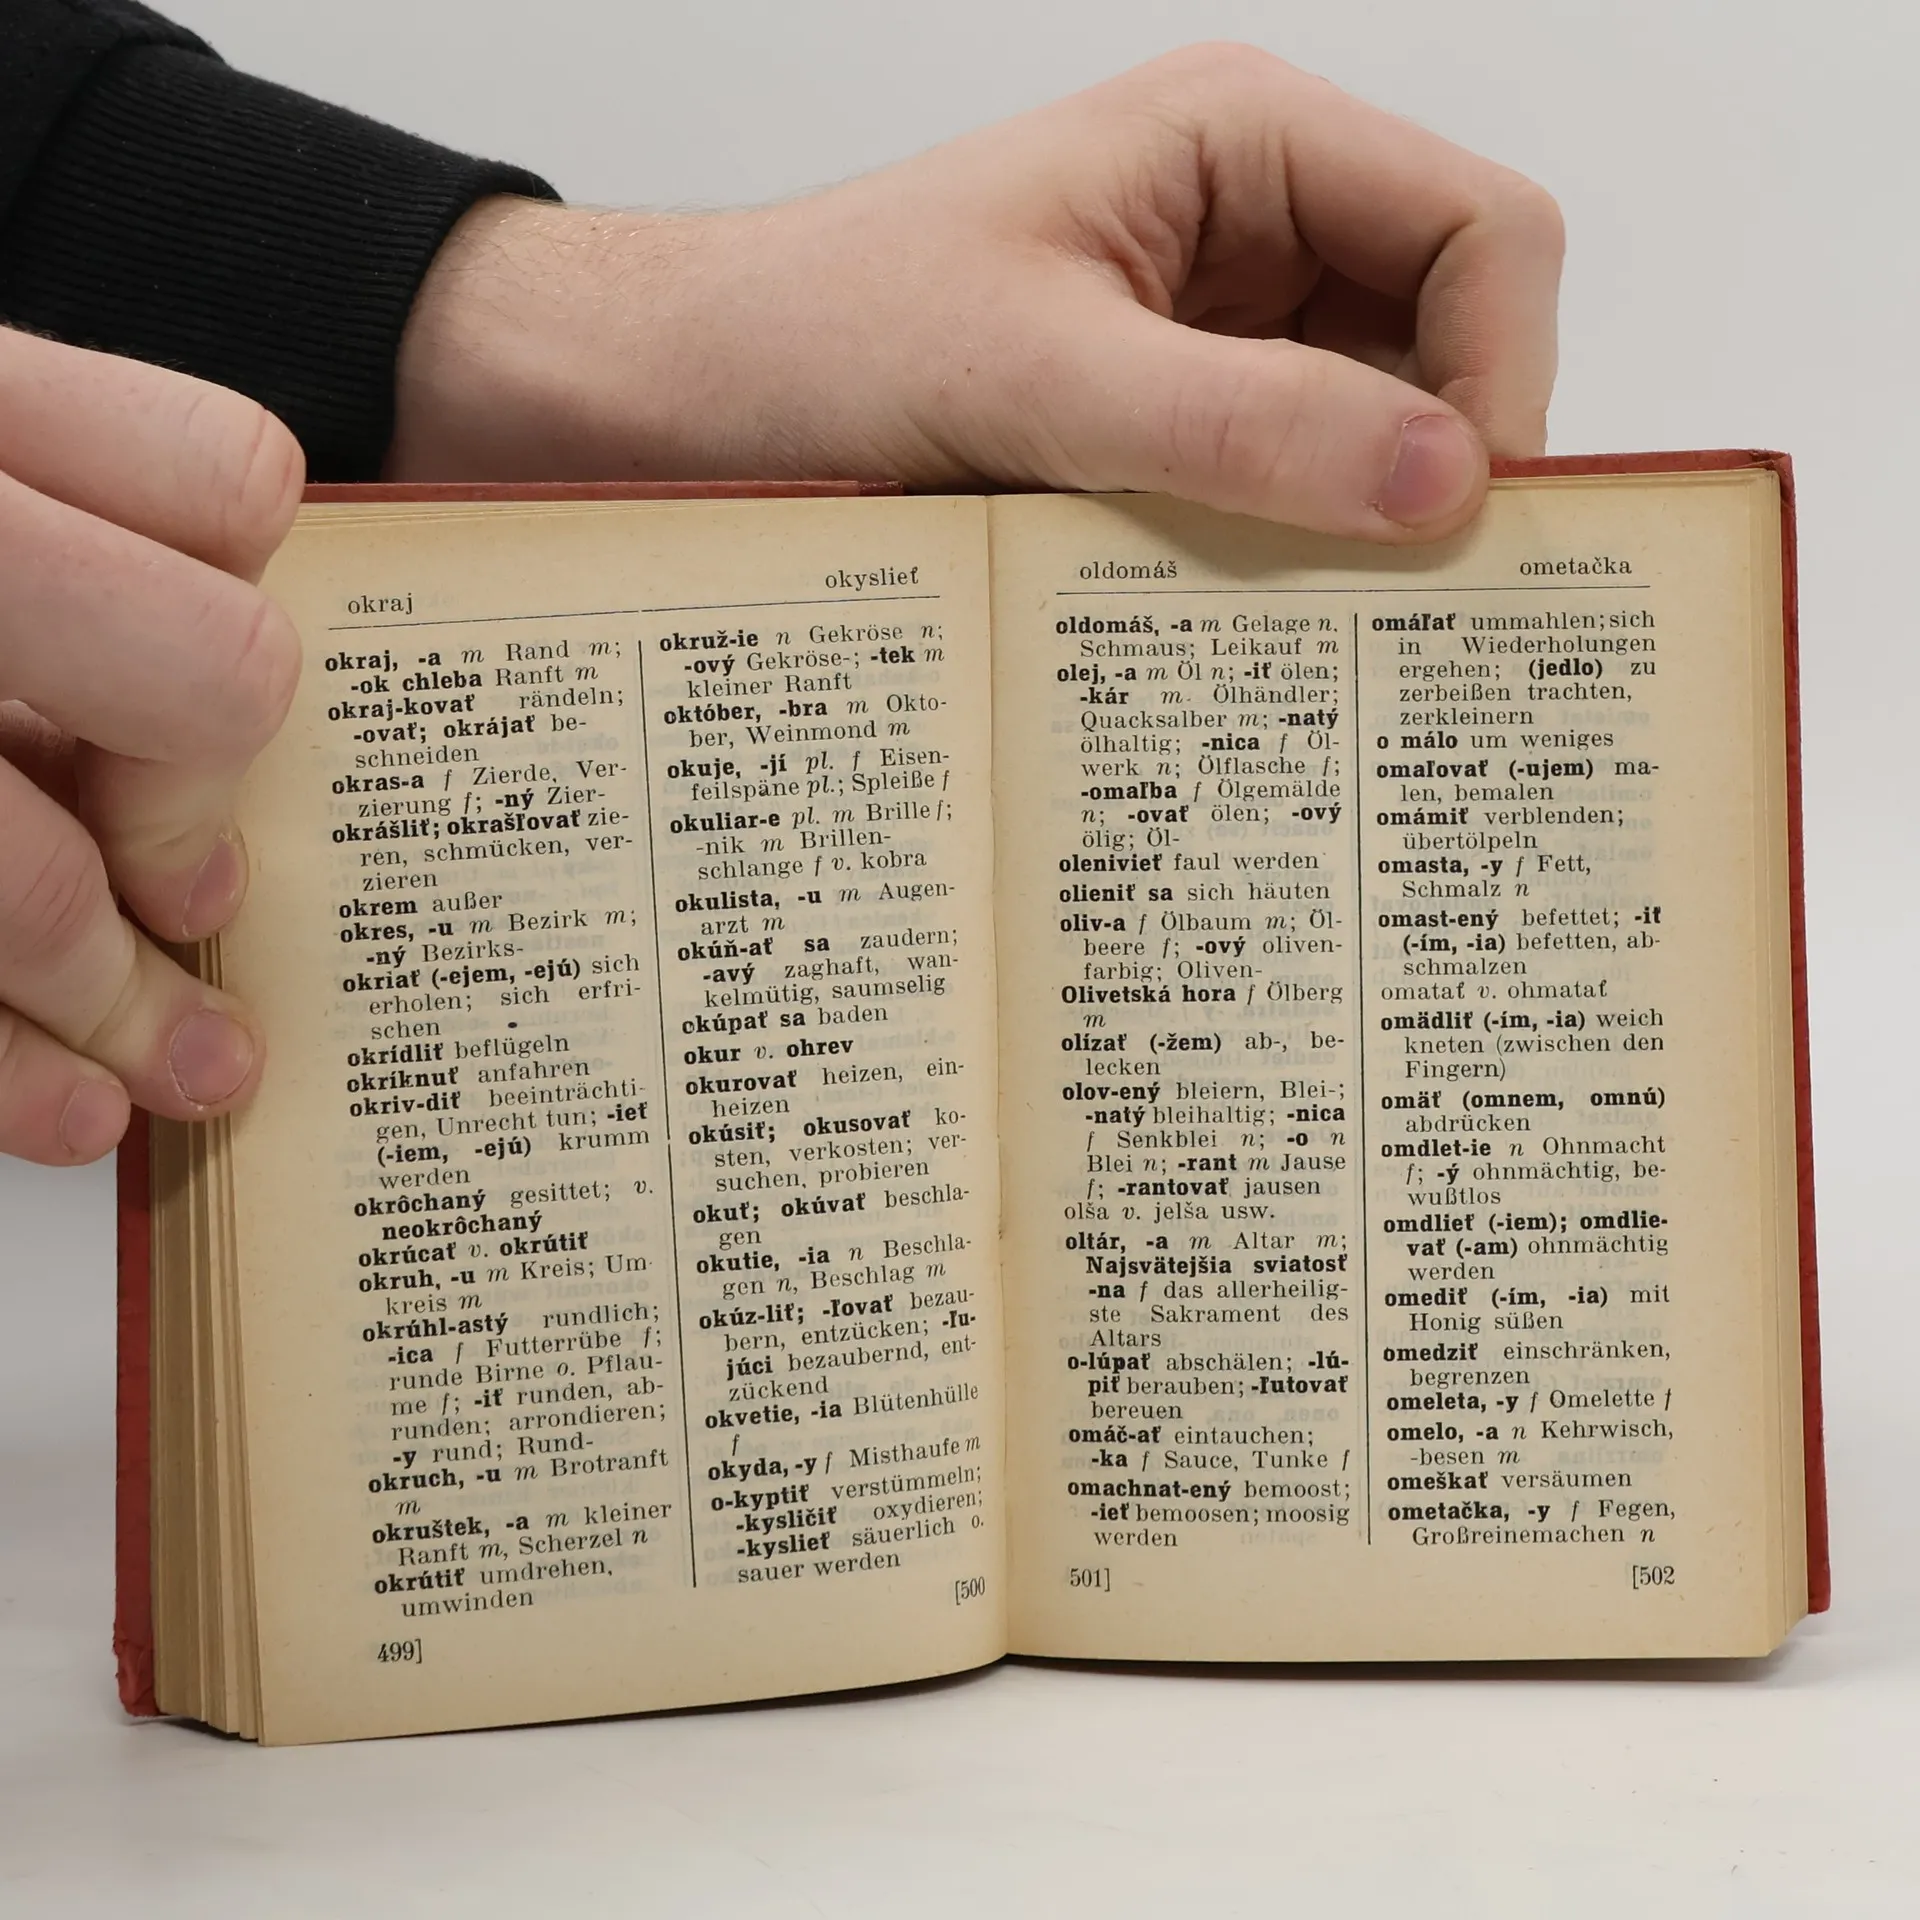 okraj
okyslieť
okraj, -a m Rand m;
-ok chleba Ranft m
okraj-kovať rändeln;
-ovať; okrájať be-
schneiden
okras-a f Zierde, Ver-
zierung f; -ný Zier-
okrášliť; okrašľovať zie-
ren, schmücken, ver-
zieren
okrem außer
okres, -u m Bezirk m;
-ný Bezirks-
okriať (-ejem, -ejú) sich
erholen; sich erfri-
schen
okrídliť beflügeln
okríknuť anfahren
okriv-diť beeinträchti-
gen, Unrecht tun; -ieť
(-iem, -ejú) krumm
werden
okrôchaný gesittet; v.
neokrôchaný
okrúcať v. okrútiť
okruh, -u m Kreis; Um-
kreis m
okrúhl-astý rundlich;
-ica f Futterrübe f;
runde Birne o. Pflau-
me f; -iť runden, ab-
runden; arrondieren;
-y rund; Rund-
okruch, -u m Brotranft
m
okruštek, -a m kleiner
Ranft m, Scherzel n
okrútiť umdrehen,
umwinden
499]
okruž-ie n Gekröse n;
-ový Gekröse-; -tek m
kleiner Ranft
október, -bra m Okto-
ber, Weinmond m
okuje, -jí pl. f Eisen-
feilspäne pl.; Spleiße f
okuliar-e pl. m Brille f;
-nik m Brillen-
schlange f v. kobra
okulista, -u m Augen-
arzt m
okúň-ať sa zaudern;
-avý zaghaft, wan-
kelmütig, saumselig
okúpať sa baden
okur v. ohrev
okurovať heizen, ein-
heizen
okúsiť; okusovať ko-
sten, verkosten; ver-
suchen, probieren
okuť; okúvať beschla-
gen
okutie, -ia n Beschla-
gen n, Beschlag m
okúz-liť; -ľovať bezau-
bern, entzücken; -ľu-
júci bezaubernd, ent-
zückend
okvetie, -ia Blütenhülle
f
okyda, -y f Misthaufe m
o-kyptiť verstümmeln;
-kysličiť oxydieren;
-kyslieť säuerlich o.
sauer werden
[500
oldomáš
ometačka
oldomáš, -a m Gelage n.
Schmaus; Leikauf m
olej, -a m Öl n; -iť ölen;
-kár m. Ölhändler;
Quacksalber m; -natý
ölhaltig; -nica f Öl-
werk n; Ölflasche f;
-omaľba f Ölgemälde
n; -ovať ölen; -ový
ölig; Öl-
olenivieť faul werden
olieniť sa sich häuten
oliv-a f Ölbaum m; Öl-
beere f; -ový oliven-
farbig; Oliven-
Olivetská hora f Ölberg
m
olízať (-žem) ab-, be-
lecken
olov-ený bleiern, Blei-;
-natý bleihaltig; -nica
f Senkblei n; -o n
Blei n; -rant m Jause
f; -rantovať jausen
olša v. jelša usw.
oltár, -a m Altar m;
Najsvätejšia sviatosť
-na f das allerheilig-
ste Sakrament des
Altars
o-lúpať abschälen; -lú-
piť berauben; -ľutovať
bereuen
omáč-ať eintauchen;
-ka f Sauce, Tunke f
omachnat-ený bemoost;
-ieť bemoosen; moosig
werden
501]
omáľať ummahlen; sich
in Wiederholungen
ergehen; (jedlo) zu
zerbeißen trachten,
zerkleinern
o málo um weniges
omaľovať (-ujem) ma-
len, bemalen
omámiť verblenden;
übertölpeln
omasta, -y f Fett,
Schmalz n
omast-ený befettet; -iť
(-ím, -ia) befetten, ab-
schmalzen
omatať v. ohmatať
omädliť (-ím, -ia) weich
kneten (zwischen den
Fingern)
omäť (omnem, omnú)
abdrücken
omdlet-ie n Ohnmacht
f; -ý ohnmächtig, be-
wußtlos
omdlieť (-iem); omdlie-
vať (-am) ohnmächtig
werden
omediť (-ím, -ia) mit
Honig süßen
omedziť einschränken,
begrenzen
omeleta, -y f Omelette f
omelo, -a n Kehrwisch,
-besen m
omeškať versäumen
ometačka, -y f Fegen,
Großreinemachen n
[502